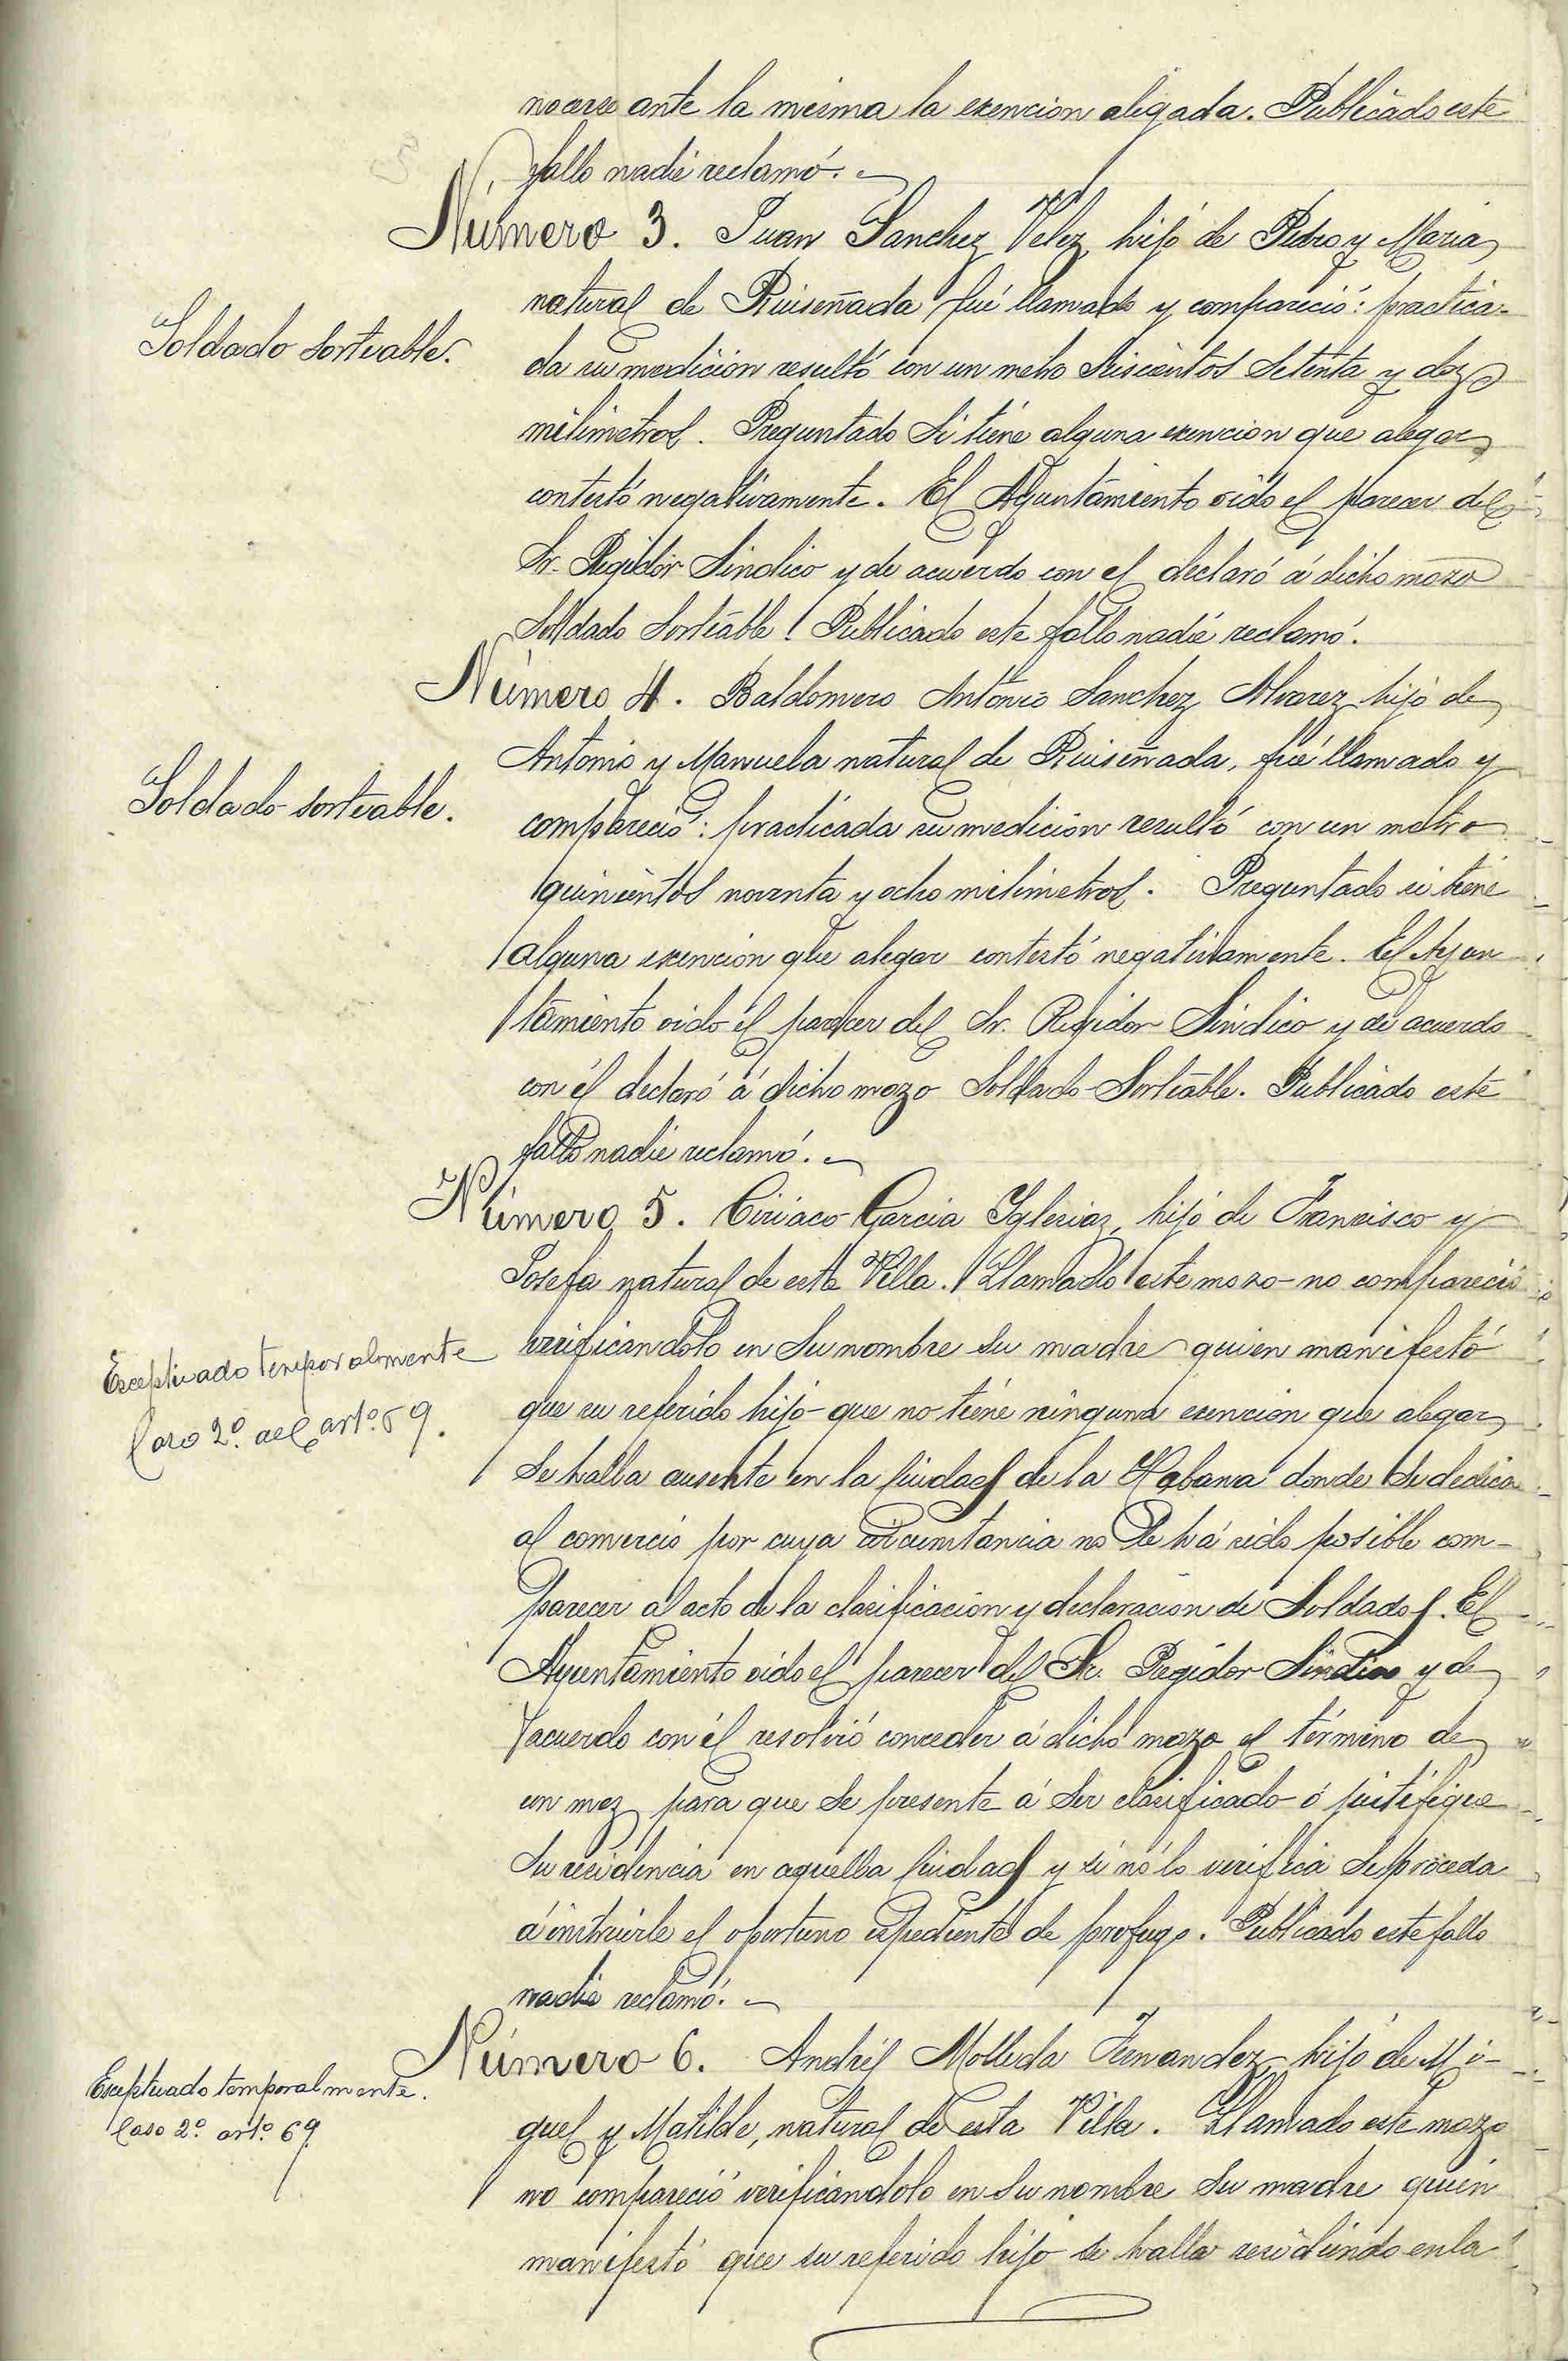 nocerse ante la misma la exencion alegada. Publicado este
fallo nadie reclamó.
Número 3. Juan Sanchez Velez, hijo de Pedro y Maria,
natural de Ruiseñada fué llamado y compareció: practica-
Soldado sorteable.
da su medición resultó con un metro seiscientos setenta y dos
milimetros. Preguntado si tiene alguna exencion que alegar,
contestó negativamente. El Ayuntamiento oido el parecer del
Sr. Regidor Sindico y de acuerdo con el declaró á dicho mozo
Soldado Sorteable. Publicado este fallo nadie reclamó.
Número 4. Baldomero Antonio Sanchez Alvarez, hijo de
Antonio y Manuela natural de Ruiseñada, fué llamado y
Soldado sorteable.
compareció: practicada su medición resultó con un metro
quinientos noventa y ocho milimetros. Preguntado si tiene
alguna exencion que alegar contestó negativamente. El Ayun
tamiento oido el parecer del Sr. Regidor Sindico y de acuerdo
con él declaró á dicho mozo Soldado Sorteable. Publicado este
fallo nadie reclamó.
Número 5. Ciriaco Garcia Yglesias, hijo de Francisco y
Josefa natural de esta Villa. Llamado este mozo no compareció
Exceptuado temporalmente
verificandolo en su nombre su madre quien manifestó
Caso 2º del artº 69.
que su referido hijo que no tiene ninguna exencion que alegar,
se halla ausente en la Ciudad de la Habana donde se dedica
al comercio por cuya circunstancia no le há sido posible com-
parecer al acto de la clasificacion y declaración de Soldados. El
Ayuntamiento oido el parecer del Sr. Regidor Sindico y de
acuerdo con él resolvió conceder á dicho mozo el término de
un mez para que se presente á ser clasificado ó justifique
su residencia en aquella Ciudad y si nó lo verifica se proceda
á instruirle el oportuno espediente de profugo. Publicado este fallo
nadie reclamó.
Número 6. Andrés Molleda Fernandez hijo de Mi-
Exceptuado temporalmente.
guel y Matilde, natural de esta Villa. Llamado este mozo
Caso 2º artº 69
no compareció verificándolo en su nombre su madre quien
manifestó que su referido hijo se halla residiendo en la